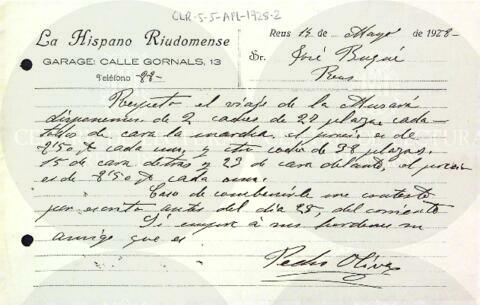 CLR-5-5-API-1928-2
La Hispano Riudomense
GARAGE: CALLE GORNALS, 13
Teléfono 22-
Reus 14 de Mayo de 1928-
Sr. José Bugué
Reus
Respeto el viaje de la Musara
disponemos de 2 coches de 22 plazas cada
todos de cara la marcha, el precio es de
cada uno, y otro coche de 38 plazas,
15 de cara detras y 23 de cara delante, el precio
es de cada uno.
Caso de combenirle me contesto
por escrito antes del dia 25, del corriente
Si a sus su
amigo que es
Pedro Olivas